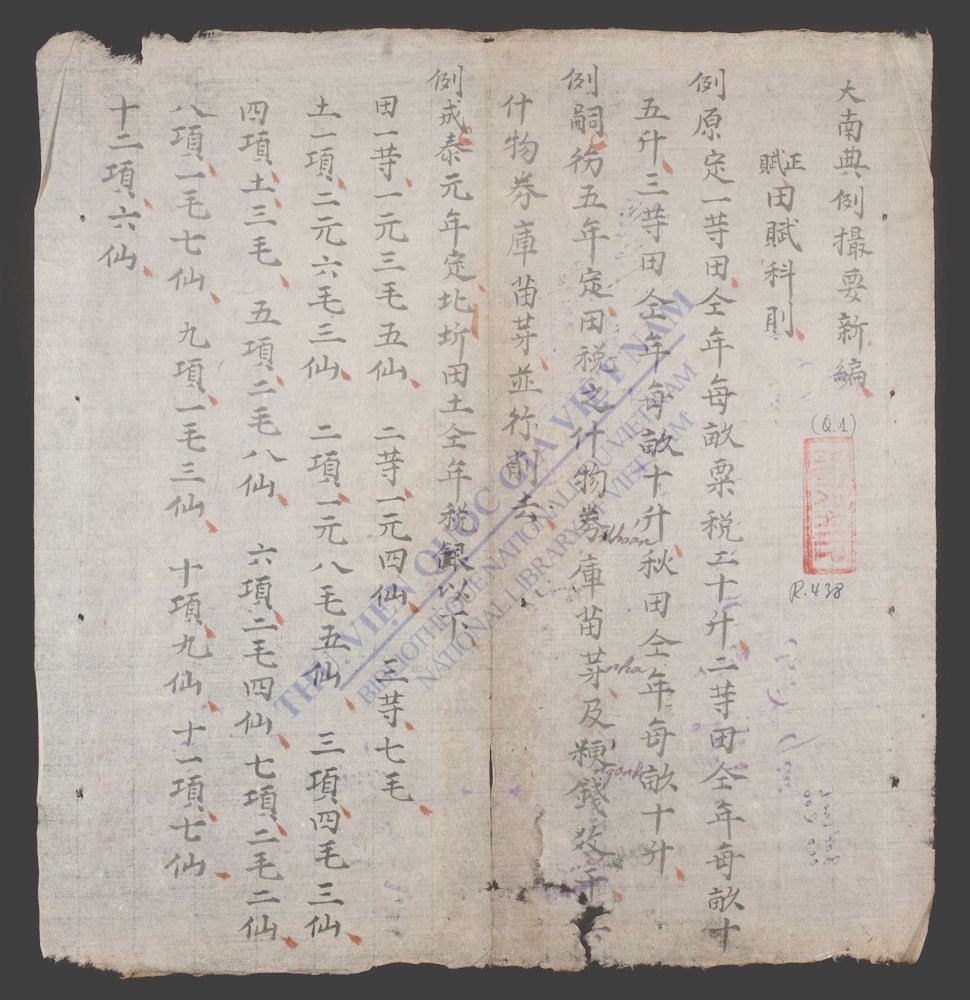 大南典例撮要新編
(Q.1)
R.438
正賦 田賦科則
例原定一䓁田仝年每畝粟税二十升二䓁田仝年每畝十
五升三䓁田仝年每畝十升秋田仝年每畝十升
例嗣德五年定田税之什物券庫苗芽及粳錢
khoán
nha
canh
什物券庫苗芽並行削去
例成泰元年定北圻田土仝年税銀以下
田一䓁一元三毛五仙 二䓁一元四仙 三䓁七毛
土一項二元六毛三仙 二項一元八毛五仙 三項四毛三仙
四項土三毛 五項二毛八仙 六項二毛四仙七項二毛二仙
八項一毛七仙 九項一毛三仙 十項九仙 十一項七仙
十二項六仙
THƯ VIỆN QUỐC GIA VIỆT NAM
BIBLIOTHEQUE NATIONALE DU VIETNAM
NATIONAL LIBRARY OF VIETNAM